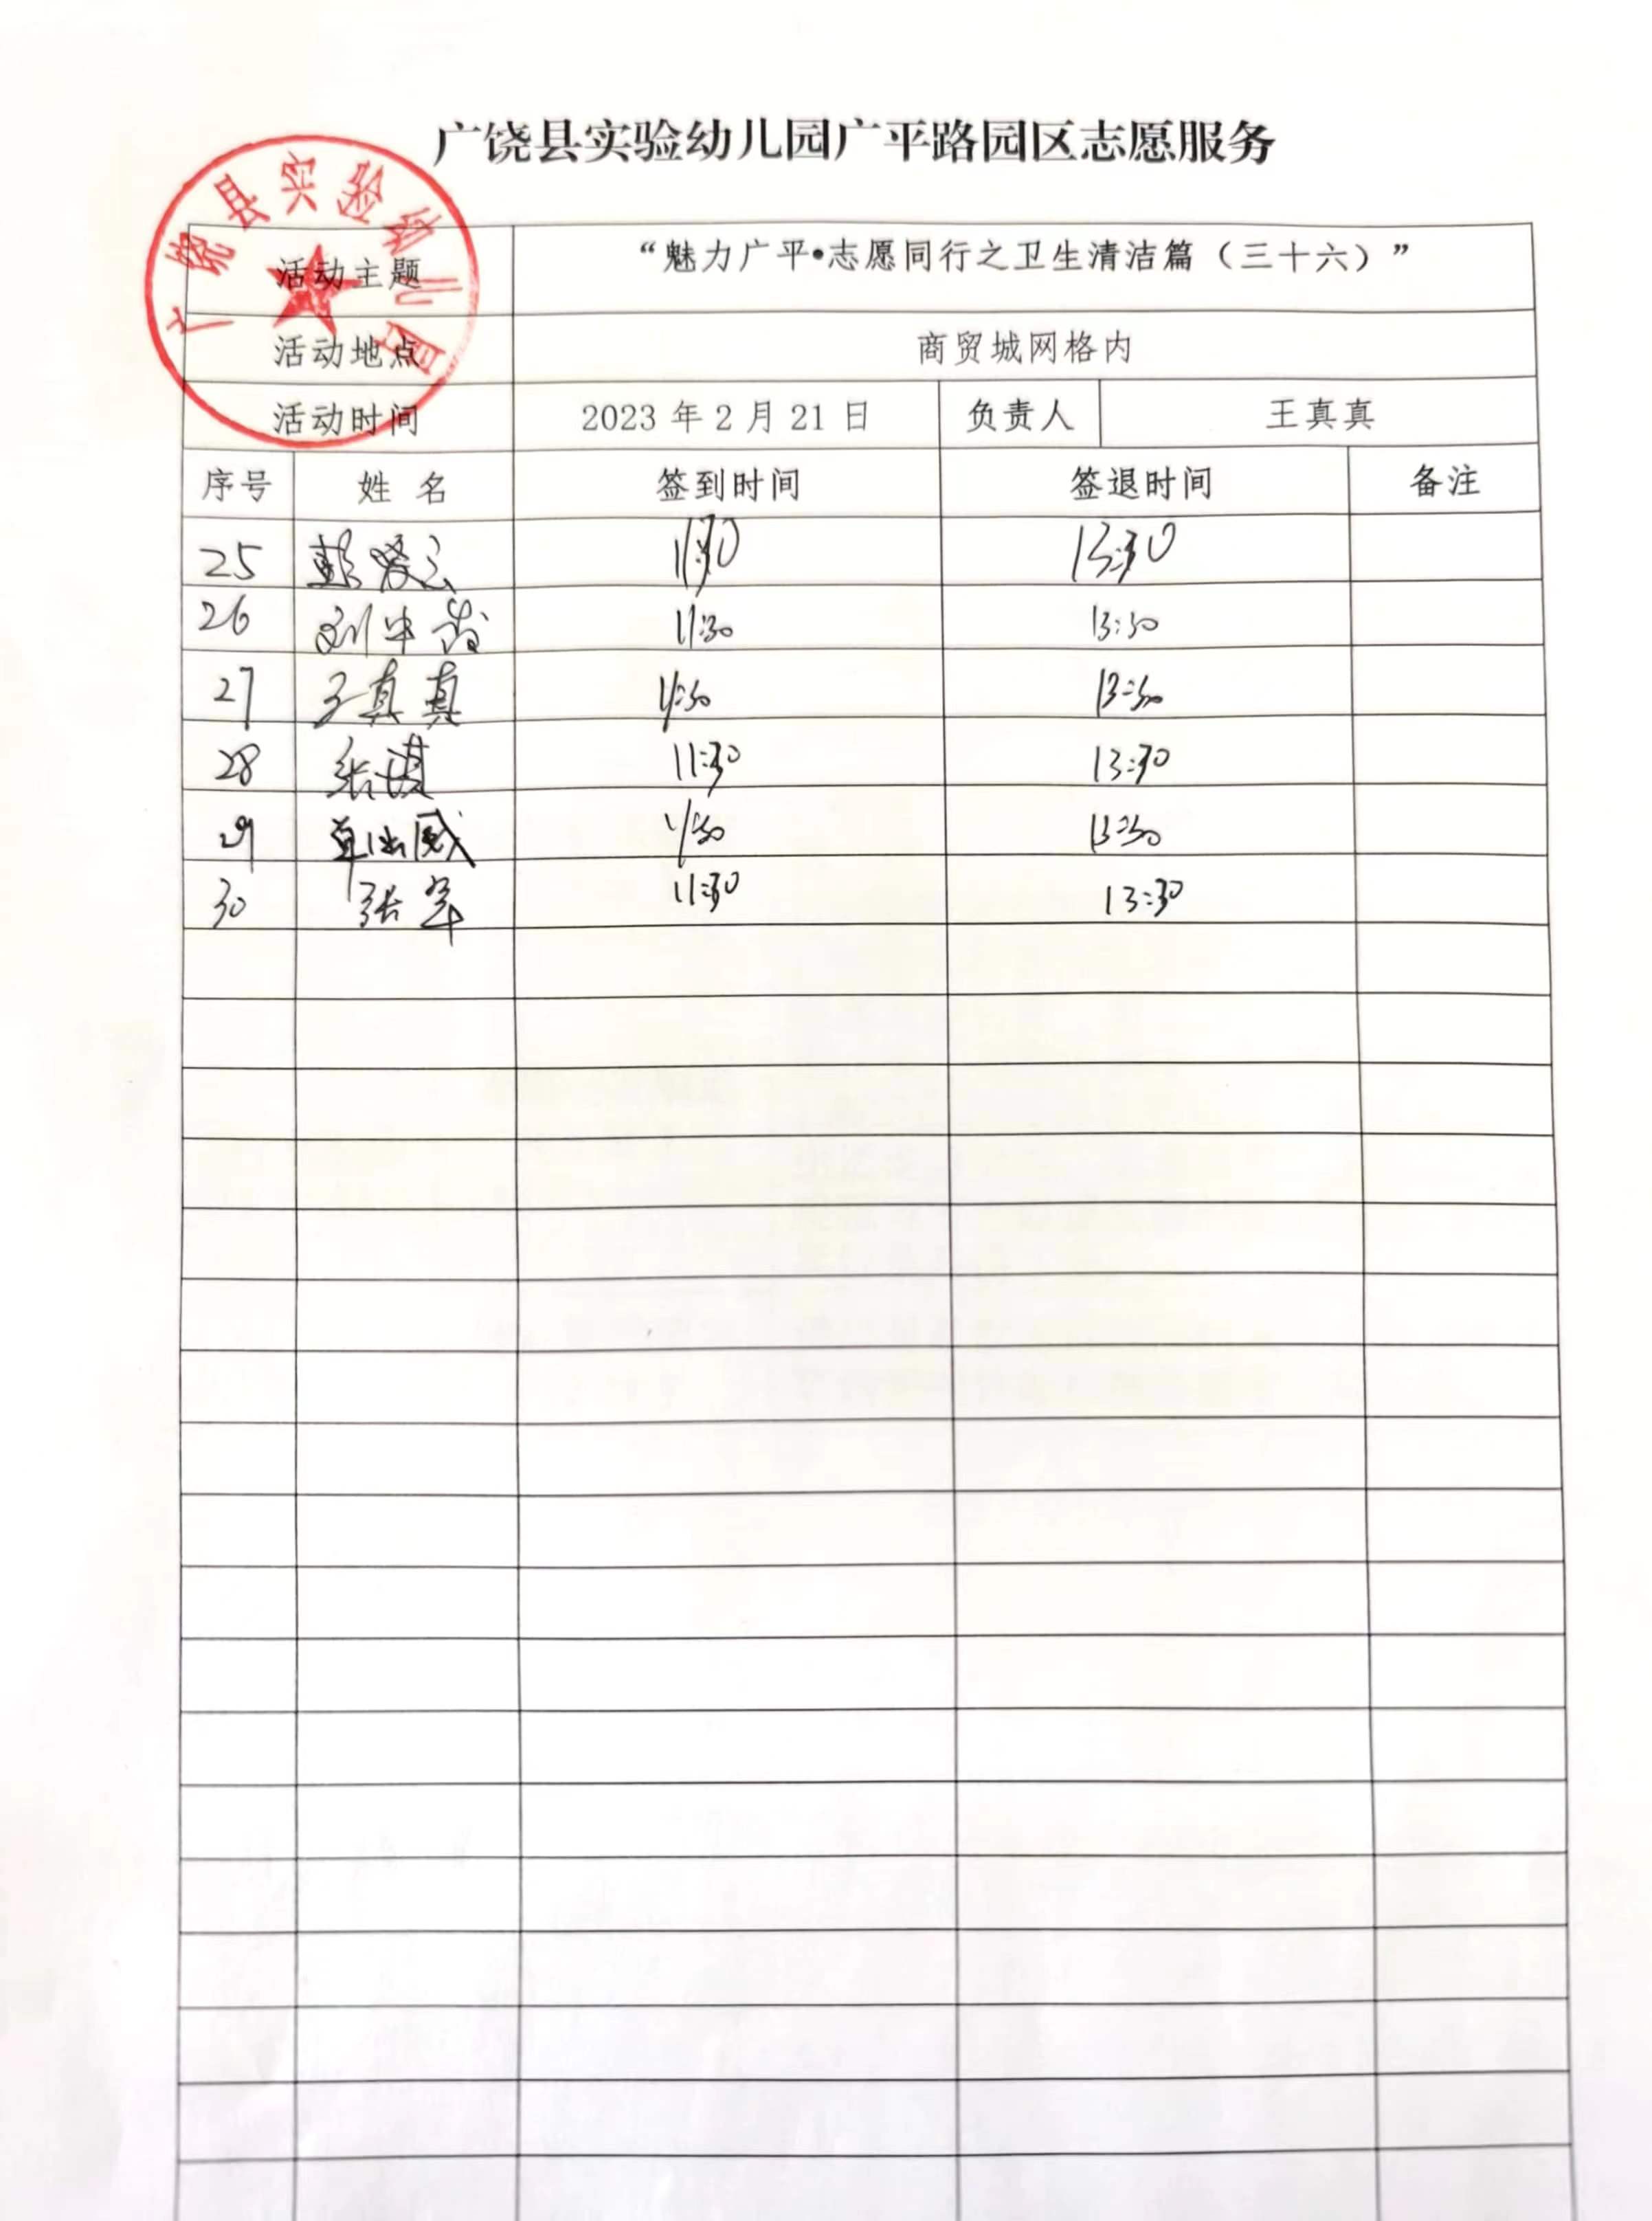 广饶县实验幼儿园广平路园区志愿服务
广饶县实验幼儿园
活动主题 “魅力广平•志愿同行之卫生清洁篇（三十六）”
活动地点 商贸城网格内
活动时间 2023年2月21日 负责人 王真真
序号 姓名 签到时间 签退时间 备注
25 11:30 13:30
26 刘 11:30 13:30
27 王真真 11:30 13:30
28 张 11:30 13:30
29 11:30 13:30
30 张军 11:30 13:30